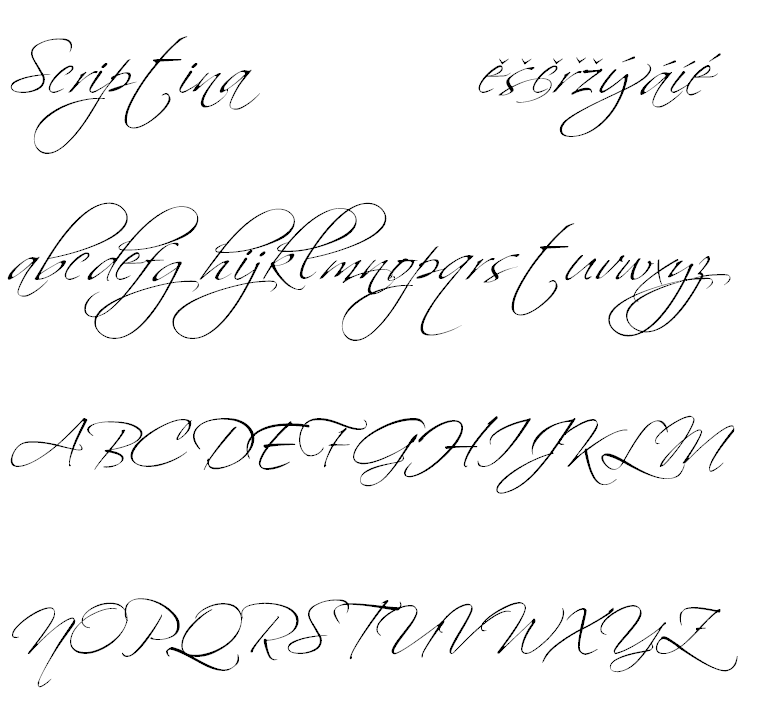 Scriptina ěščřžýáíé
abcdefghijklmnopqrstuvwxyz
ABCDEFGHIJKLM
NOPQRSTUVWXYZ